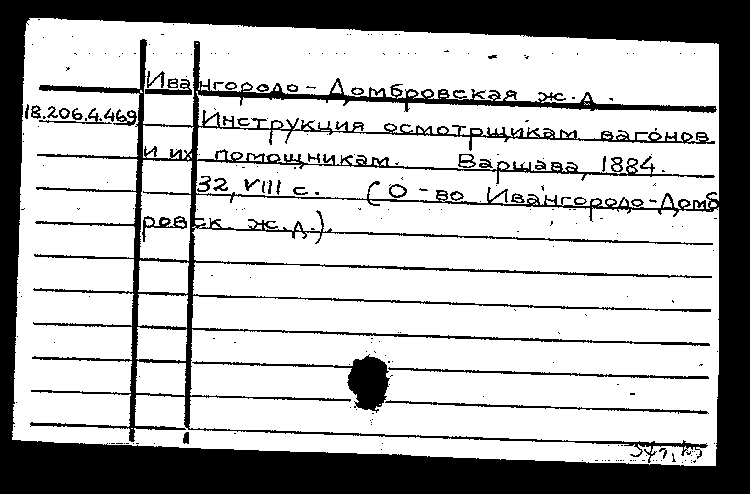 Ивангородо-Домбровская ж.д.
18.206.4.469 Инструкция осмотрщикам вагонов
и их помощникам. Варшава, 1884.
32, VIII с. (О-во Ивангородо-Домб
ровск. ж.д.).